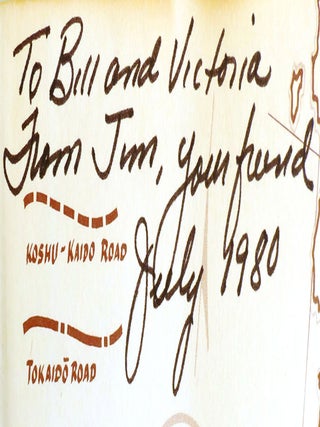 To Bill and Victoria
From Jim, your friend
July 1980
KOSHU-KAIDO ROAD
TOKAIDŌ ROAD